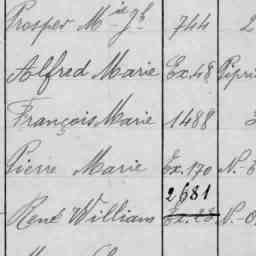 Prosper Mie Jh 744 2
Alfred Marie Ex.48 Pépi
François Marie 1488
Pierre Marie Ex.170 N.-
2681
René William Ex.23 N.-